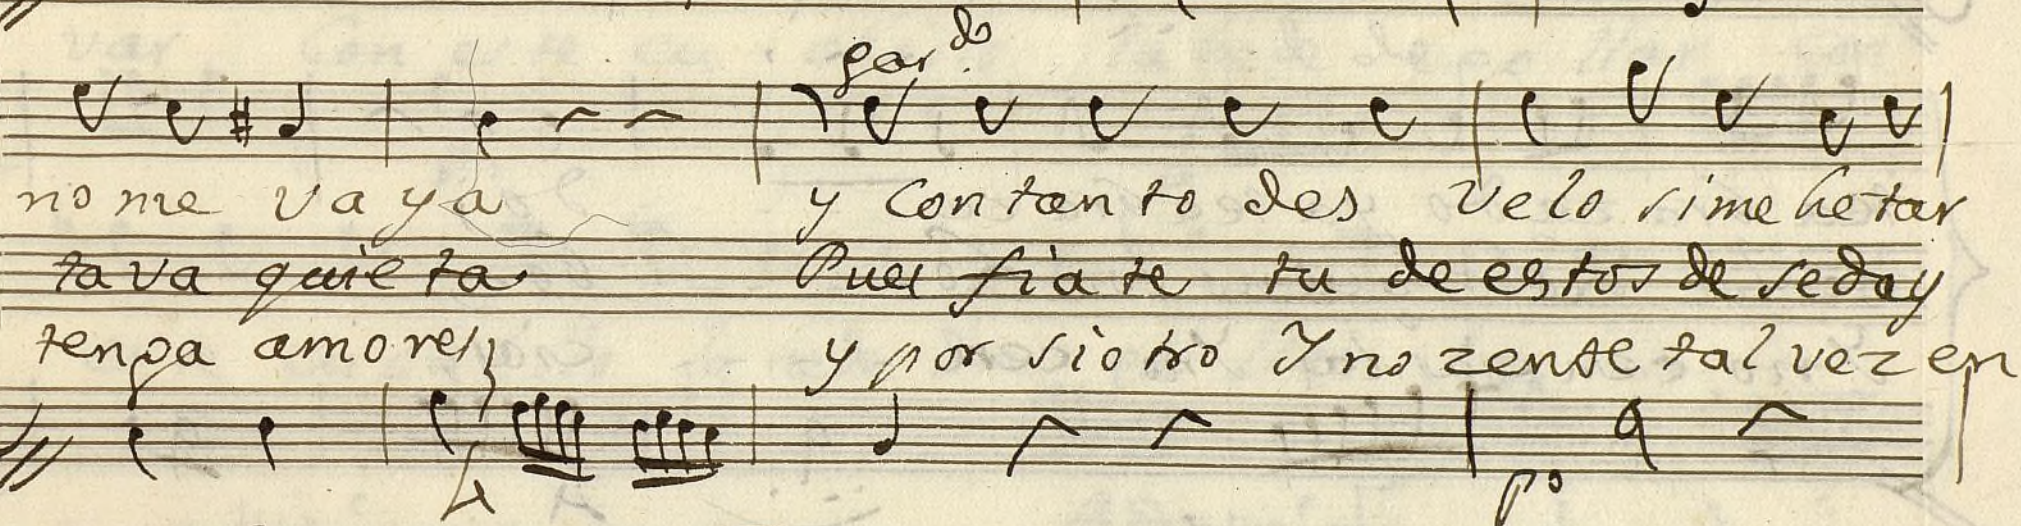 par do
no me va ya y Con tan to des velo si me he tar
ta va quie ta Pues fia te tu de es tos de se da y
tenga amores y por si o tro Y no zente tal vez en
po